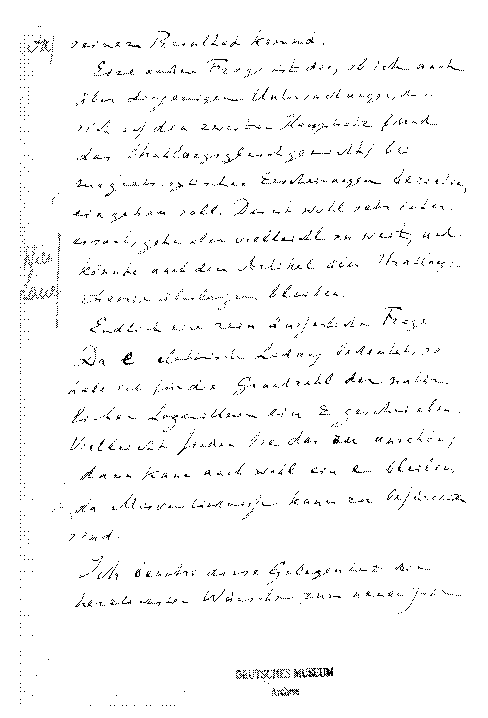 seinem Resultat kommt.
Eine andere Frage ist die, ob ich auch
über diejenigen Untersuchungen, die
sich auf den zweiten Hauptsatz (und
das Strahlungsgleichgewicht) bei
magneto-optischen Erscheinungen beziehen,
eingehen soll. Das ist wohl sehr inter-
essant, geht aber vielleicht zu weit, und
könnte nach dem Artikel über Strahlungs-
theorie überlassen bleiben.
Wien
Laue
Endlich eine rein äusserliche Frage
Da e elektrische Ladung bedeutet, so
habe ich für die Grundzahl der natür-
lichen Logarithmen ein E geschrieben.
Vielleicht finden Sie das zu unschön;
dann kann auch wohl ein e bleiben,
da Missverständnisse kaum zu befürchten
sind.
Ich benutze diese Gelegenheit den
herzlichsten Wünschen zum neuen Jahr
DEUTSCHES MUSEUM
Archiv